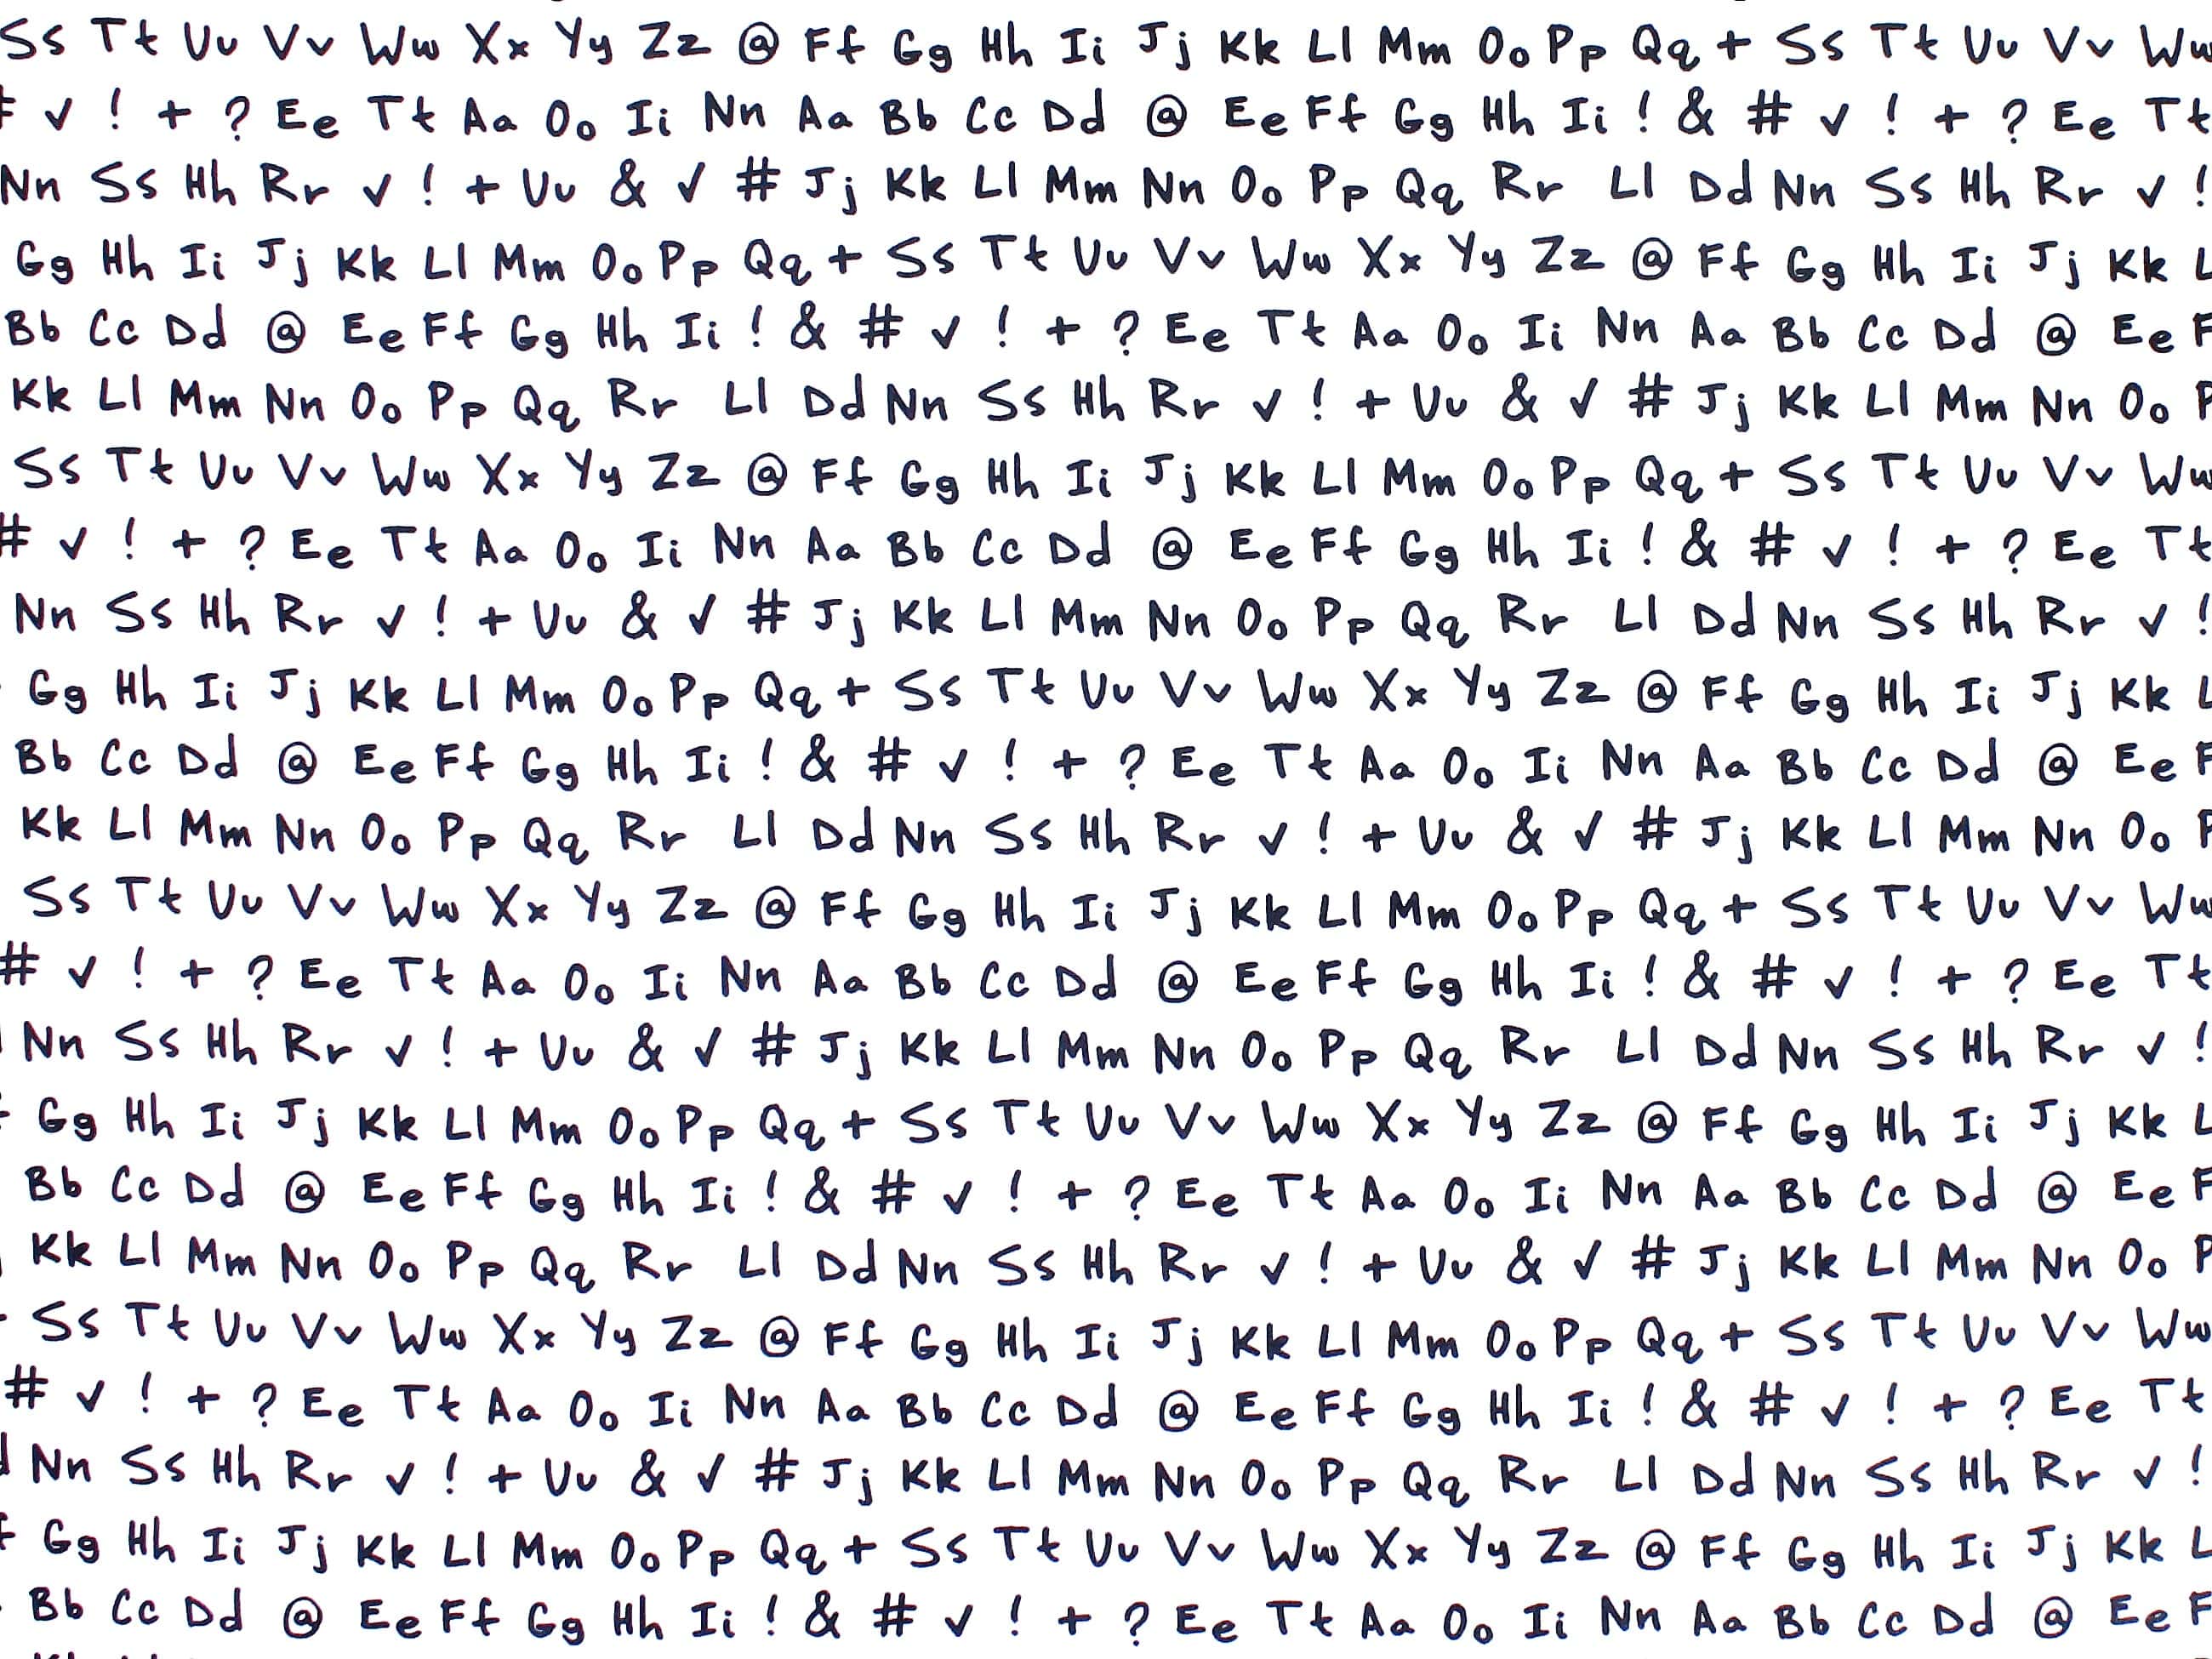 Ss Tt Uu Vv Ww Xx Yy Zz @ Ff Gg Hh Ii Jj Kk Ll Mm Oo Pp Qq + Ss Tt Uu Vv Ww
# ✓ ! + ? Ee Tt Aa Oo Ii Nn Aa Bb Cc Dd @ Ee Ff Gg Hh Ii ! & # ✓ ! + ? Ee Tt
Nn Ss Hh Rr ✓ ! + Uu & ✓ # Jj Kk Ll Mm Nn Oo Pp Qq Rr Ll Dd Nn Ss Hh Rr ✓ !
Gg Hh Ii Jj Kk Ll Mm Oo Pp Qq + Ss Tt Uu Vv Ww Xx Yy Zz @ Ff Gg Hh Ii Jj Kk L
Bb Cc Dd @ Ee Ff Gg Hh Ii ! & # ✓ ! + ? Ee Tt Aa Oo Ii Nn Aa Bb Cc Dd @ Ee F
Kk Ll Mm Nn Oo Pp Qq Rr Ll Dd Nn Ss Hh Rr ✓ ! + Uu & ✓ # Jj Kk Ll Mm Nn Oo P
Ss Tt Uu Vv Ww Xx Yy Zz @ Ff Gg Hh Ii Jj Kk Ll Mm Oo Pp Qq + Ss Tt Uu Vv Ww
# ✓ ! + ? Ee Tt Aa Oo Ii Nn Aa Bb Cc Dd @ Ee Ff Gg Hh Ii ! & # ✓ ! + ? Ee Tt
Nn Ss Hh Rr ✓ ! + Uu & ✓ # Jj Kk Ll Mm Nn Oo Pp Qq Rr Ll Dd Nn Ss Hh Rr ✓ !
Gg Hh Ii Jj Kk Ll Mm Oo Pp Qq + Ss Tt Uu Vv Ww Xx Yy Zz @ Ff Gg Hh Ii Jj Kk L
Bb Cc Dd @ Ee Ff Gg Hh Ii ! & # ✓ ! + ? Ee Tt Aa Oo Ii Nn Aa Bb Cc Dd @ Ee F
Kk Ll Mm Nn Oo Pp Qq Rr Ll Dd Nn Ss Hh Rr ✓ ! + Uu & ✓ # Jj Kk Ll Mm Nn Oo P
Ss Tt Uu Vv Ww Xx Yy Zz @ Ff Gg Hh Ii Jj Kk Ll Mm Oo Pp Qq + Ss Tt Uu Vv Ww
# ✓ ! + ? Ee Tt Aa Oo Ii Nn Aa Bb Cc Dd @ Ee Ff Gg Hh Ii ! & # ✓ ! + ? Ee Tt
Nn Ss Hh Rr ✓ ! + Uu & ✓ # Jj Kk Ll Mm Nn Oo Pp Qq Rr Ll Dd Nn Ss Hh Rr ✓ !
Gg Hh Ii Jj Kk Ll Mm Oo Pp Qq + Ss Tt Uu Vv Ww Xx Yy Zz @ Ff Gg Hh Ii Jj Kk L
Bb Cc Dd @ Ee Ff Gg Hh Ii ! & # ✓ ! + ? Ee Tt Aa Oo Ii Nn Aa Bb Cc Dd @ Ee F
Kk Ll Mm Nn Oo Pp Qq Rr Ll Dd Nn Ss Hh Rr ✓ ! + Uu & ✓ # Jj Kk Ll Mm Nn Oo P
Ss Tt Uu Vv Ww Xx Yy Zz @ Ff Gg Hh Ii Jj Kk Ll Mm Oo Pp Qq + Ss Tt Uu Vv Ww
# ✓ ! + ? Ee Tt Aa Oo Ii Nn Aa Bb Cc Dd @ Ee Ff Gg Hh Ii ! & # ✓ ! + ? Ee Tt
Nn Ss Hh Rr ✓ ! + Uu & ✓ # Jj Kk Ll Mm Nn Oo Pp Qq Rr Ll Dd Nn Ss Hh Rr ✓ !
Gg Hh Ii Jj Kk Ll Mm Oo Pp Qq + Ss Tt Uu Vv Ww Xx Yy Zz @ Ff Gg Hh Ii Jj Kk L
Bb Cc Dd @ Ee Ff Gg Hh Ii ! & # ✓ ! + ? Ee Tt Aa Oo Ii Nn Aa Bb Cc Dd @ Ee F